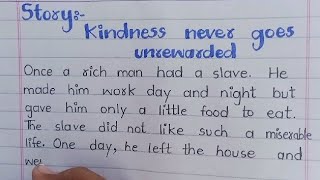 Story:-
Kindness never goes
unrewarded
Once a rich man had a slave. He
made him work day and night but
gave him only a little food to eat.
The slave did not like such a miserable
life. One day, he left the house and
we